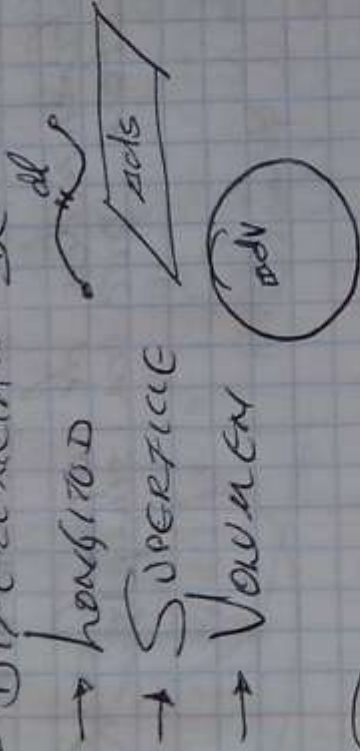 → LONGITUD dl
→ SUPERFICIE ds
→ VOLUMEN dv